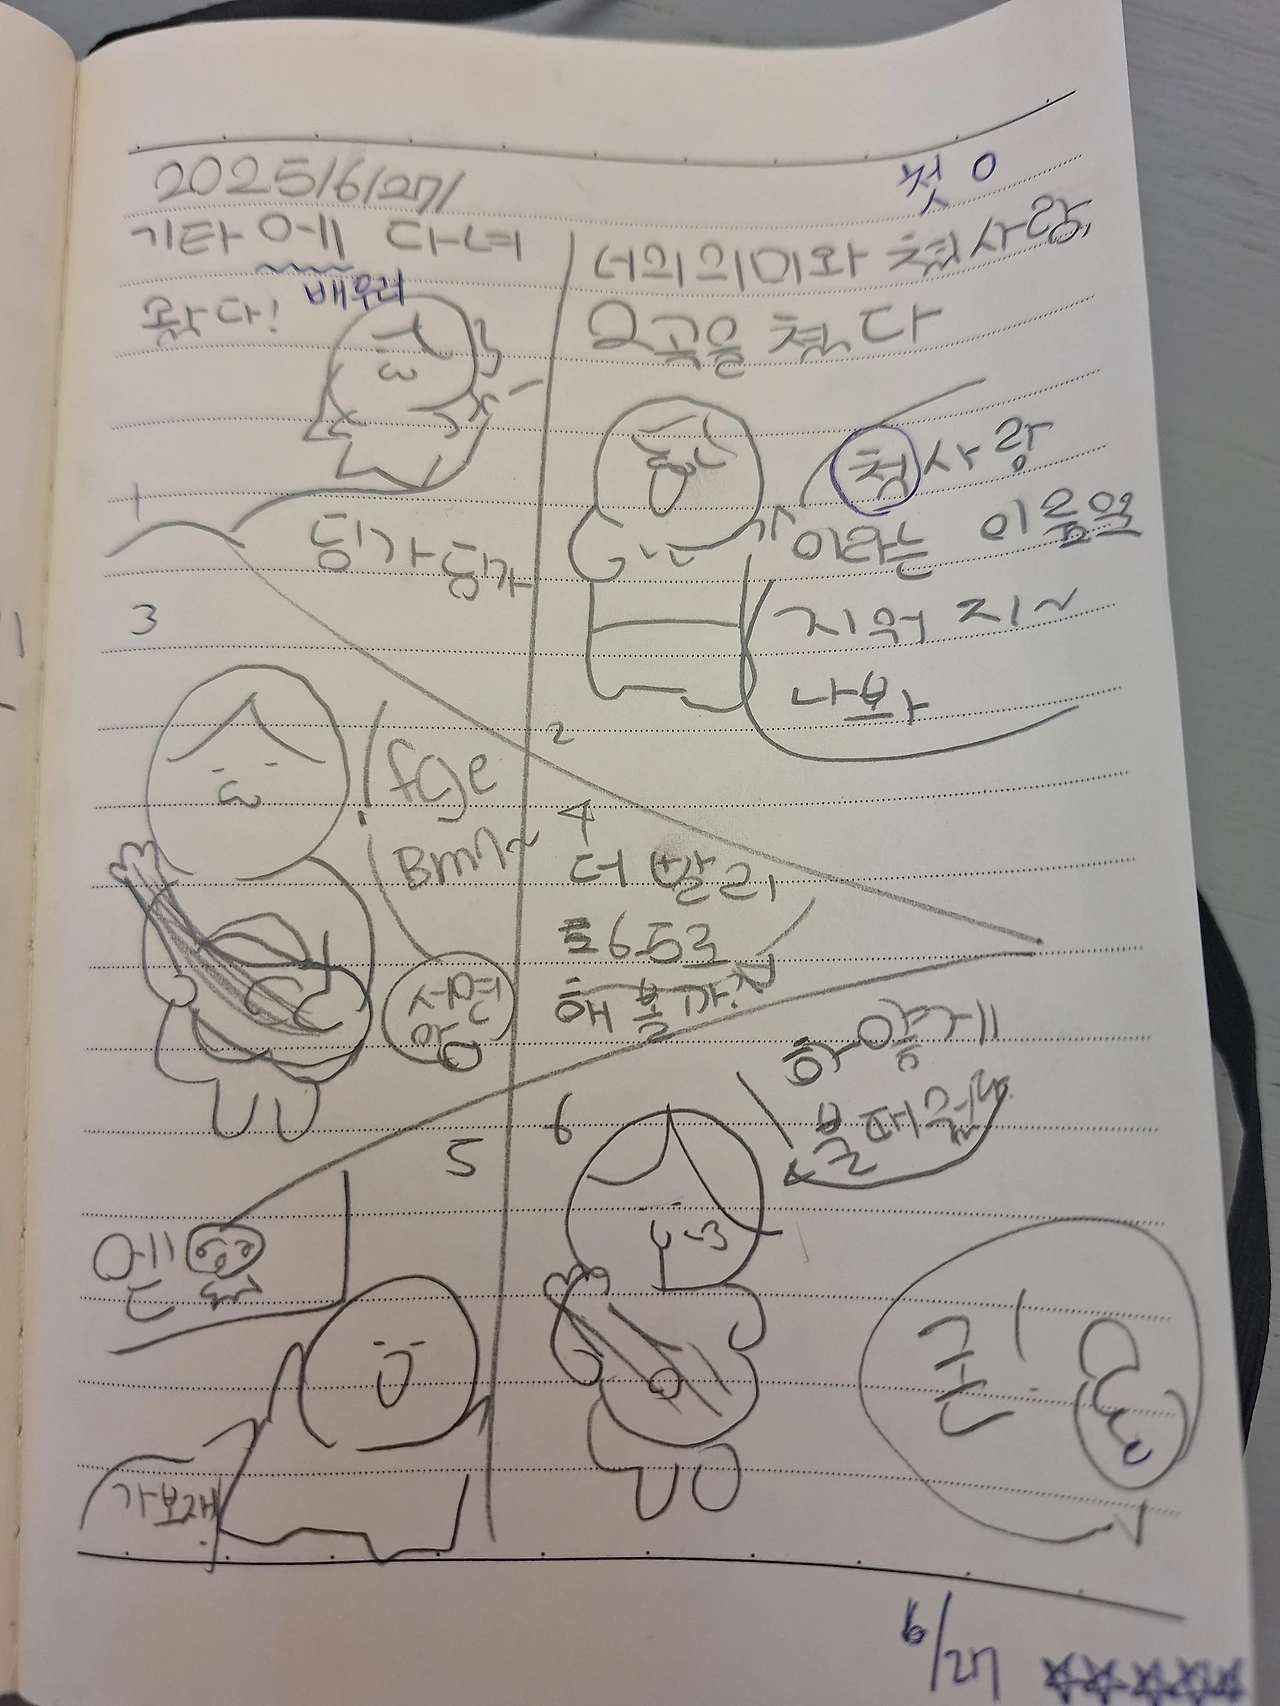 2025/6/27/
첫 0
기타 에 다녀
배우러
왔다!
1
딩가딩가
너의의미와 첬사랑,
2곡을 쳤다
첬사랑
이라는 이름은
지워 지~
나봐
2
3
fge
Bm7~
4
더 빨리,
65로
해 볼까?
5
가보쟤
6
하얗게
불태웠다.
끝!
6/27
☆☆☆☆☆